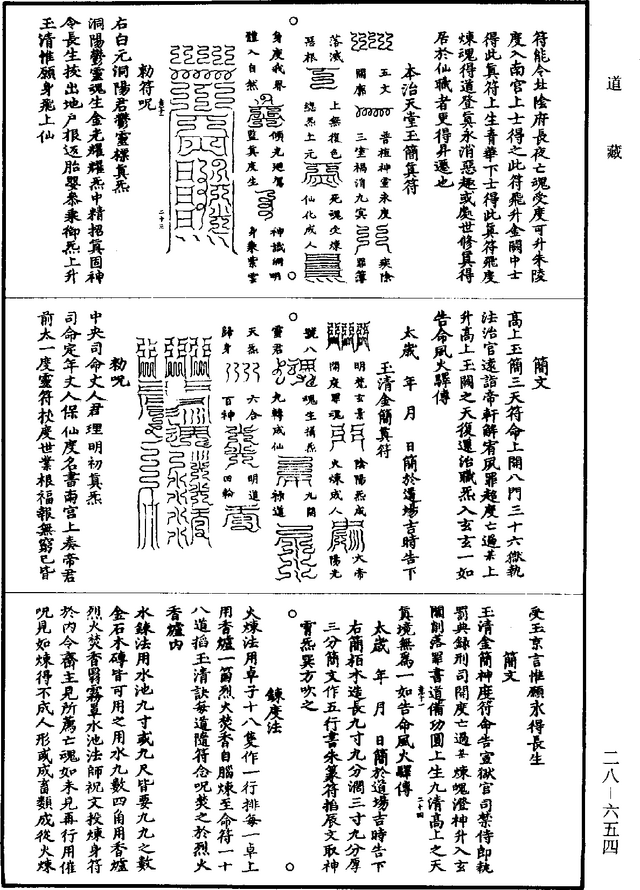 道藏
符能令赴陰府長夜亡魂受度可升朱陵
度入南宮上士得之此符飛升金闕中士
得此真符上生青華下士得此真符飛度
煉魂得道登真永消惡趣或處世修真得
居於仙職者更得昇遷也
本治天堂玉簡真符
五文 普植神童來度 爽陰
開廓 三空福消九玄
落滅 上無復色 死魂受煉
惡根 遶炁上元 仙化成人
身度我界 傾光迴駕 神識朗明
體入自然 監真度生 身乘素雲
二十三
勑符呪
右白元洞陽君鬱靈標真炁
洞陽鬱靈魂生金光耀耀炁中精招真固神
令長生按出地戶根返胎嬰泰乘御炁上升
玉清惟願身飛上仙
簡文
高上玉簡三天符命上開八門三十六獄執
法治官遠詣帝軒解宥夙罪超度亡過某上
升高上玉闕之天復遷治職炁入玄玄一如
告命風火驛傳
太歲 年 月 日簡於道場吉時告下
玉清金簡真符
明梵玄景 陰陽炁成 大帝
開度罪魂 火煉成人 陽光
號八 魂生搆炁 九開
靈君 九轉成仙 神道
天炁 六合 明道
歸身 百神 四輪
勑呪
中央司命丈人君 理明初真炁
司命定年丈人保仙度名書南宮上奏帝君
前太一度靈符扶度世業根福報無窮已皆
受玉京言惟願永得長生
簡文
玉清金簡神度符命告宣獄官司禁侍即執
罰典錄刑司開度亡過某煉魄澄神升入玄
闕削落罪書道備功圓上生九清高上之天
真境無為一如告命風火驛傳
二十四
太歲 年 月 日簡於道場吉時告下
右簡栢木造長九寸九分濶三寸九分厚
三分簡文作五行書朱篆符掐辰文取神
霄炁巽方吹之
鍊度法
火煉法用卓子十八隻作一行排每一卓上
用香爐一箇烈火焚香自腦煉至命符一十
八道掐玉清訣每道隨符念呪焚之於烈火
香爐內
水鍊法用水池九寸或九尺皆要九九之數
金石木磚皆可用之用水九數四角用香爐
烈火焚香靄霧罩水池法師祝文投煉身符
於內令齋主見所薦亡魂如未見再行用催
呪見如煉得不成人形或成畜類成從火煉
二八—六五四